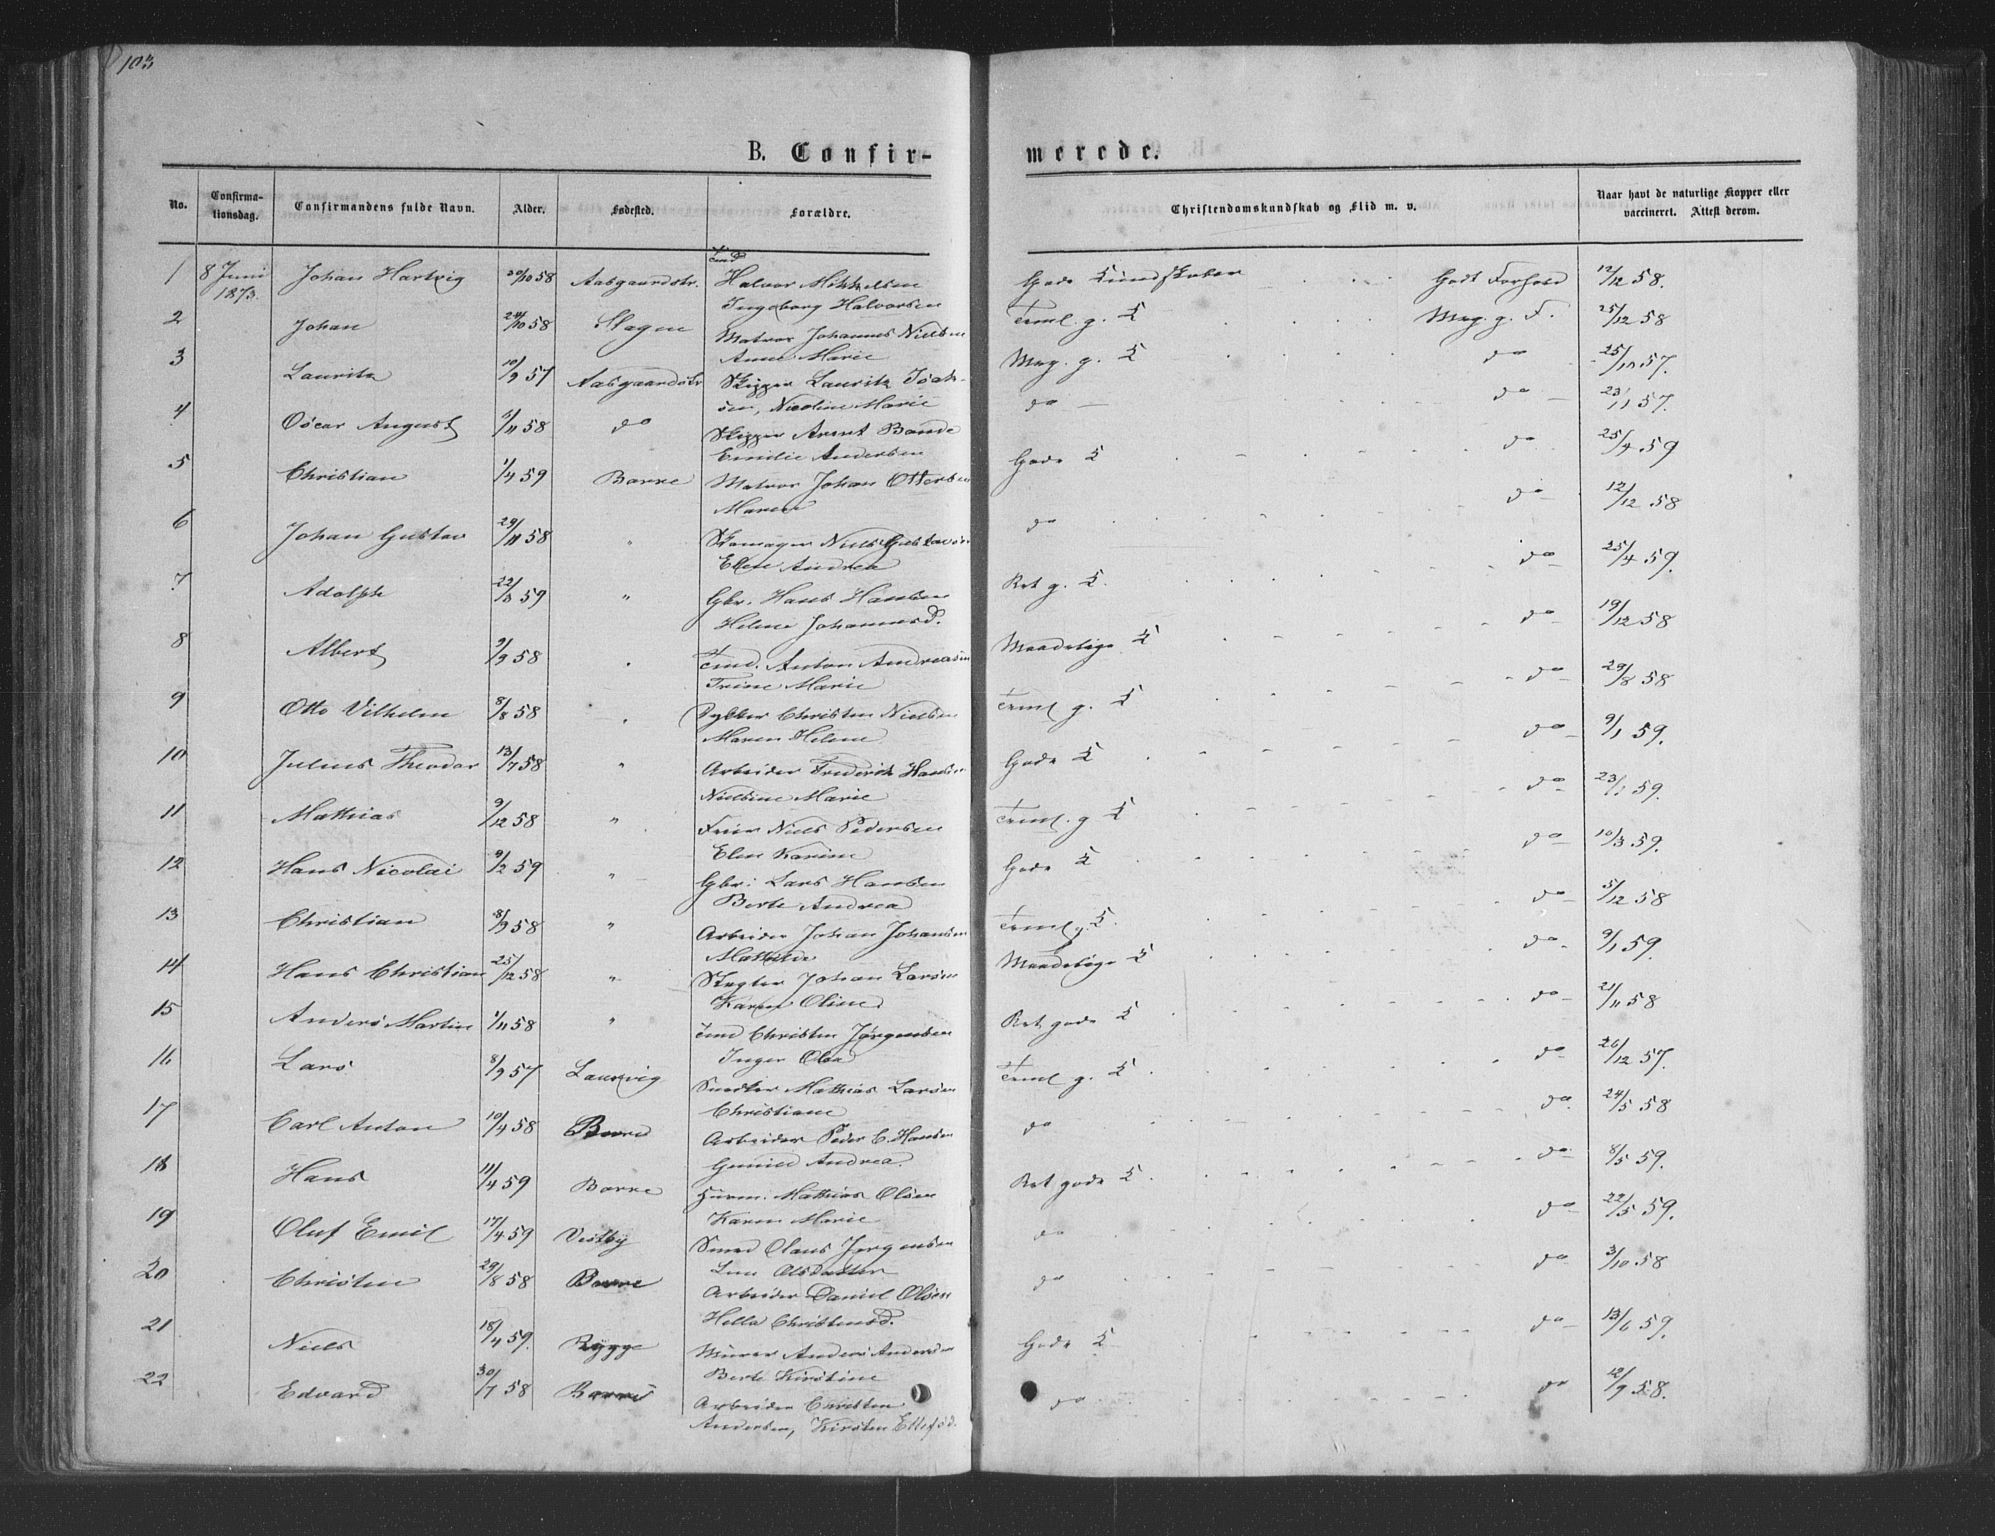 103
B. Confir-
merede.
No.
Confirma-
tionsdag.
Confirmandens fulde Navn.
Alder.
Fødested.
Forældre.
Christendomskundskab og Flid m. v.
Naar havt de naturlige Kopper eller
vaccineret. Attest derom.
1 8 Juni 1873. Johan Hartvig 20/10 58 Aasgaardstr. Tmd Halvor Mikkelsen
Ingeborg Halvorsen
Gode Kundskaber Godt Forhold 12/12 58.
2 Johan 24/10 58 Slagen Matros Johannes Nielsen
Anne Marie
Teml. g. K Meg. g. F. 25/12 58
3 Lauritz 10/9 57 Aasgaardstr Skipper Lauritz Isak-
sen, Nicoline Marie
Meg. g. K do 25/10 57.
4 Oscar August 5/11 58 do Skipper Arent Bande
Emilie Andersen
do do 23/11 57.
5 Christian 1/4 59 Borre Matros Johan Ottersen
Maren
Gode K do 25/4 59
6 Johan Gustav 29/11 58 " Skomager Niels Gustavsen
Ellen Andrea
do do 12/12 58
7 Adolph 22/3 59 " Gbr. Hans Hansen
Helene Johannesd.
Ret g. K. do 25/4 59.
8 Albert 9/9 58 Tmd. Anton Andreasen
Trine Marie
Maadelige K do 19/12 58
9 Otto Vilhelm 8/8 58 Christen Nielsen
Maren Helene
Teml g. K do 29/8 58
10 Julius Theodor 13/7 58 " Arbeider Frederik Hansen
Nielsine Marie
Gode K do 9/1 59.
11 Mathias 9/12 58 " Niels Pedersen
Elen Karine
Teml. g K do 23/1 59.
12 Hans Nicolai 9/2 59 " Gbr: Lars Hansen
Berte Andrea
Gode K do 10/3 59.
13 Christian 8/9 58 " Arbeider Johan Johansen
Mathilde
Teml g. K. do 5/12 58
14 Hans Christian 25/12 58 " Slagter Johan Larsen
Karen Oline
Maadelige K do 9/1 59.
15 Anders Martin 1/11 58 " Tmd Christen Jørgensen
Inger Olea
Ret gode K do 21/11 58
16 Lars 8/9 57 Laurvig Snedker Mathias Larsen
Christiane
Teml g. K. do 26/12 57.
17 Carl Anton 10/4 58 Borre Arbeider Peder C. Hansen
Gunild Andrea.
do do. 24/5 58
18 Hans 11/4 59 Borre Huusm: Mathias Olsen
Karen Marie
Ret gode K. do. 8/5 59.
19 Oluf Emil 17/4 59 Vestby Smed Olaus Jørgensen
Line Olsdatter
do do 22/5 59.
20 Christen 29/8 58 Borre Arbeider Daniel Olsen
Hella Christensd.
do do 3/10 58
21 Niels 18/4 59. Rygge Murer Anders Andersen
Berte Kirstine
Gode K do 13/6 59.
22 Edvard 30/7 58 Borre Arbeider Christen
Andersen, Kirsten Ellefsd.
do do 12/9 58.